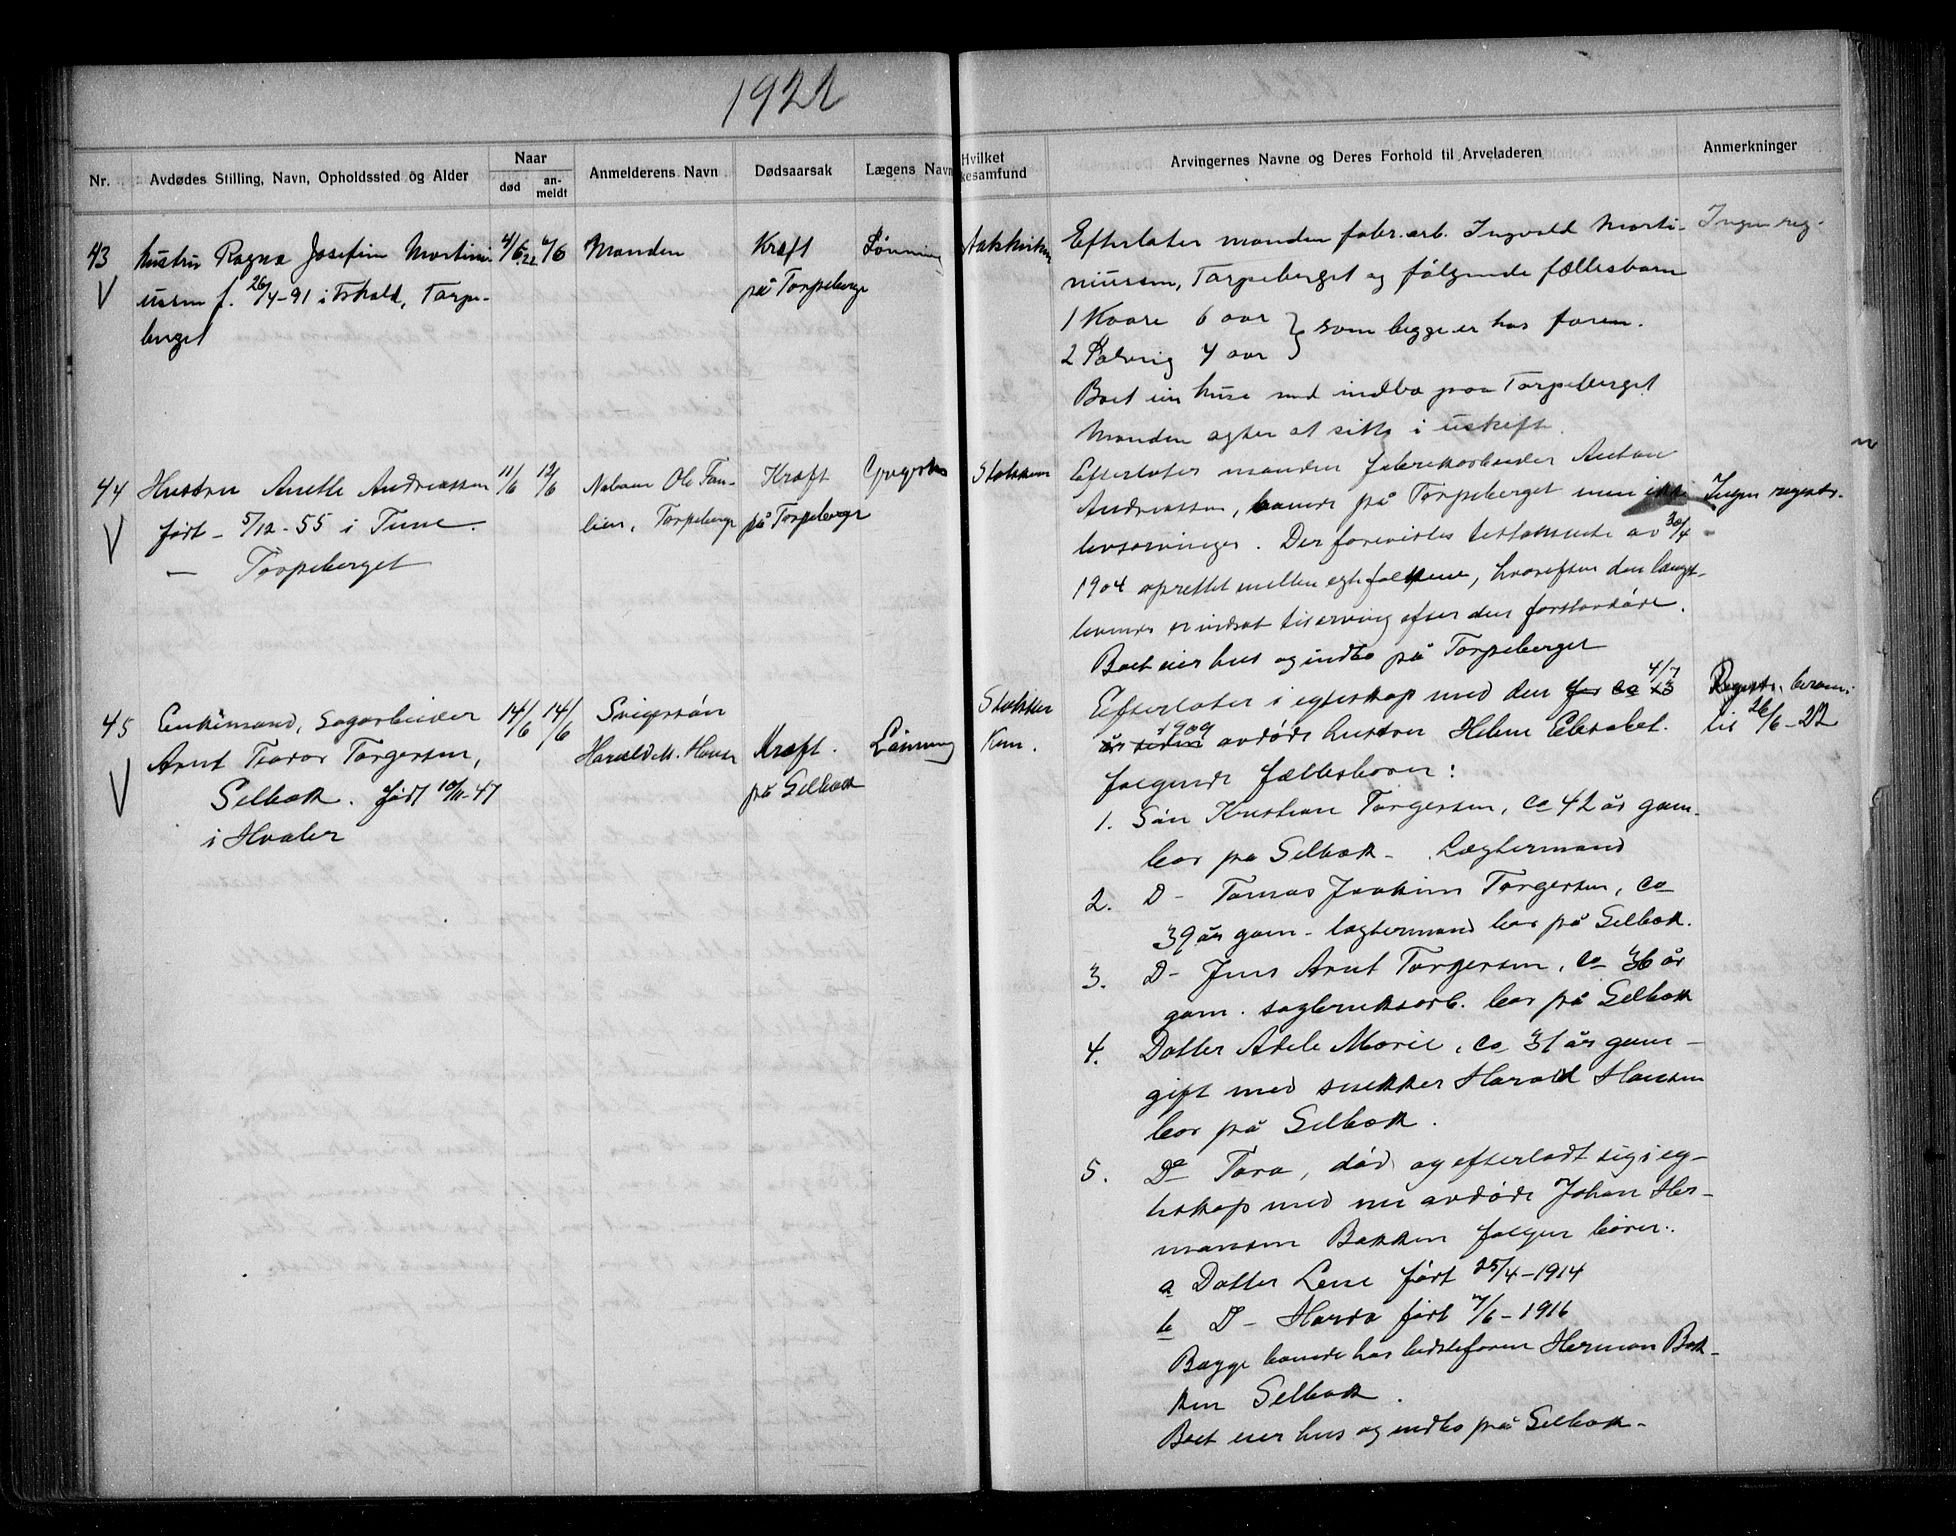 1922
Nr.
Avdødes Stilling, Navn, Opholdssted og Alder
Naar
død
an-
meldt
Anmelderens Navn
Dødsaarsak
Lægens Navn
Hvilket
kesamfund
Arvingernes Navne og Deres Forhold til Arveladeren
Anmerkninger
43
hustru Ragna Josefin Martini-
ussen f. 26/4-91 i Fshald, Torpe-
berget
4/6 22
6/6
Manden
Kræft
på Torpeberge
Lönning
Efterlater manden fabr. arb. Ingvald Marti-
niussen, Torpeberget og følgende fællesbarn
1 Kaare 6 aar
2 Solveig 4 aar } som begge er hos faren.
Boet eier huse med indbo paa Torpeberget
Manden agter at sitte i uskifte.
Ingen reg.
44
Hustru Anette Andreassen
født - 5/12-55 i Tune.
— Torpeberget
11/6
12/6
Naboen Ole Tan-
lien, Torpeberge
Kræft
på Torpeberge
Stokken
Efterlater manden fabrikarbeider Anton
Andreassen, boende på Torpeberget men ikke
livsarvinger. Der forevistes testamente av 30/4
1904 oprettet mellem egtefolkene, hvorefter den længst-
levende er indsat til arving efter den førstavdöde.
Boet eier hus og indbo på Torpeberget
Ingen registr.
45
Enkemand, Sagarbeider
Arnt Teodor Torgersen,
Selbak. født 10/11-47
i Hvaler
14/6
14/6
Svigersön
Harald M. Hansen
Kræft.
på Selbak
Lönning
Stokken
Kom.
Efterlater i egteskap med den for ca 13 4/7
år siden 1909 avdöde hustru Helene Elisabet.
følgende fællesbarn:
1. Sön Kristian Torgersen, ca 42 år gam-
bor på Selbak - Lægtermand
2. D- Tomas Joakim Torgersen, ca
39 år gam - lægtermand bor på Selbak.
3. D- Jens Arnt Torgersen, ca 36 år
gam. sagbruksarb. bor på Selbak
4. Datter Adele Marie, ca 31 år gam -
gift med snekker Harald Hansen
bor på Selbak.
5. Do Tora, død og efterladt sig i eg-
teskap med nu avdöde Johan Her-
mansen Bakken følgen börn:
a Datter Lene født 25/4-1914
b D- Harda født 7/6-1916
Begge boende hos bedstefaren Herman Bak-
ken Selbak.
Boet eier hus og indbo på Selbak -
Registr. beram.
til 26/6-22